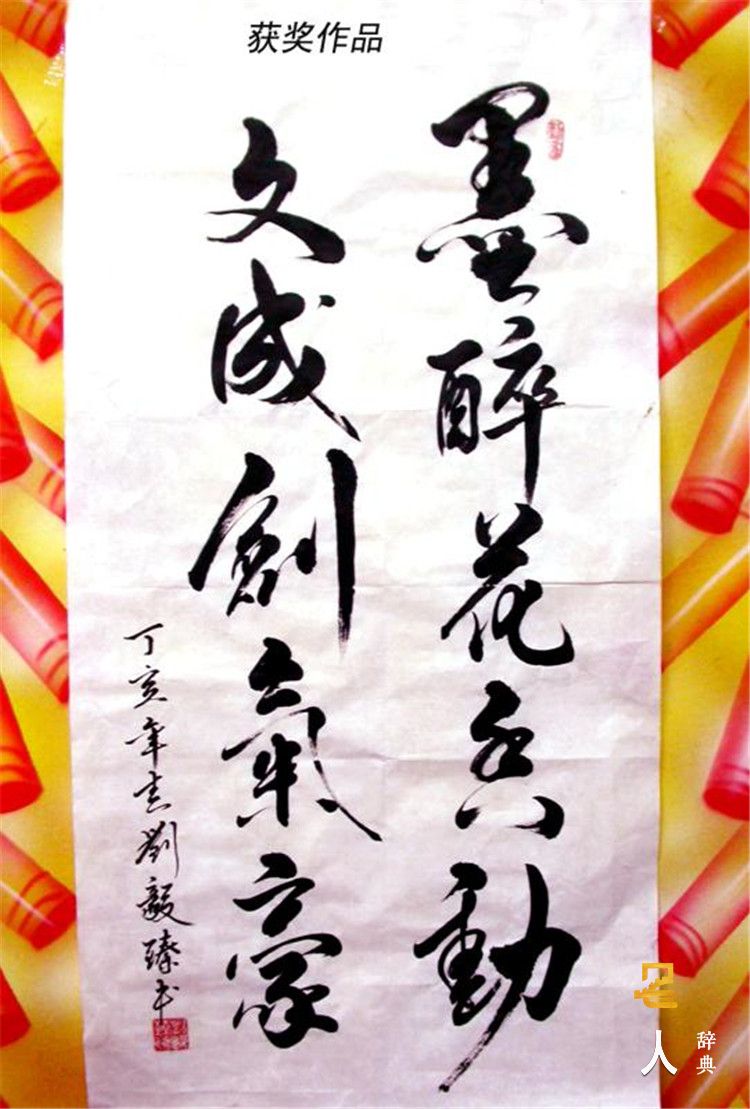 获奖作品
墨醉花香動
文成劍氣豪
丁亥年劉毅臻书
名人
辞典